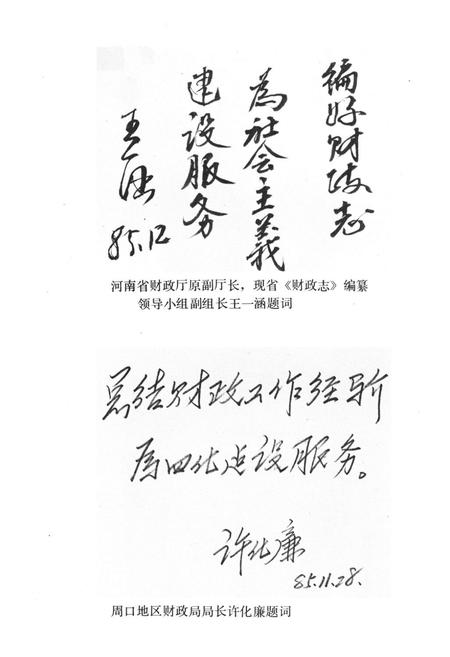 编好财政志
为社会主義
建设服务
王一涵
85.12
河南省财政厅原副厅长，现省《财政志》编纂
领导小组副组长王一涵题词
总结财政工作经验
为四化建设服务。
许化廉
85.11.28.
周口地区财政局局长许化廉题词